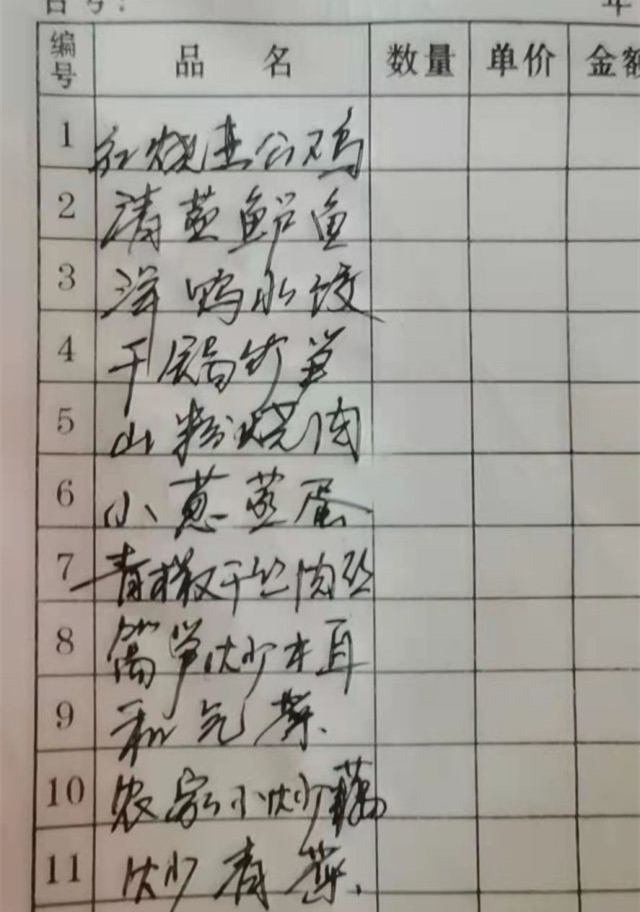 台号： 年
编号 品 名 数量 单价 金额
1 红烧土公鸡
2 清蒸鲈鱼
3 洋鸭水饺
4 干锅竹笋
5 山粉烧肉
6 小葱蒸蛋
7 青椒干丝肉丝
8 莴笋炒木耳
9 和气菜.
10 农家小炒藕
11 炒青菜.